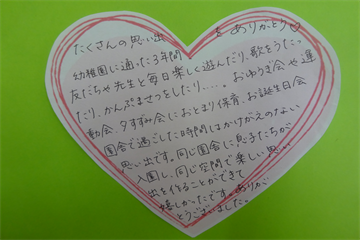 たくさんの思い出をありがとう♡
幼稚園に通った3年間
友だちや先生と毎日楽しく遊んだり、歌をうたっ
たり、かんぷまさつをしたり…、おゆうぎ会や運
動会、夕すずみ会におとまり保育、お誕生日会
園舎で過ごした時間はかけがえのない
思い出です。同じ園舎に息子たちが
入園し、同じ空間で楽しい思い
出を作ることができて
嬉しかったです。ありが
とうございました。